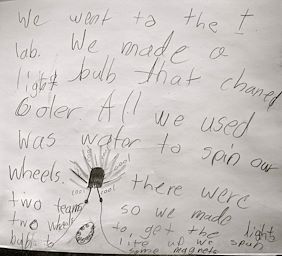 We went to the I.
lab. We made a
light bulb that chaned
Coler. All we used
was water to spin our
wheels. cool
cool cool there were
two teams so we made
two wheels to, get the lights
bulb to lite up we spun
some magnets